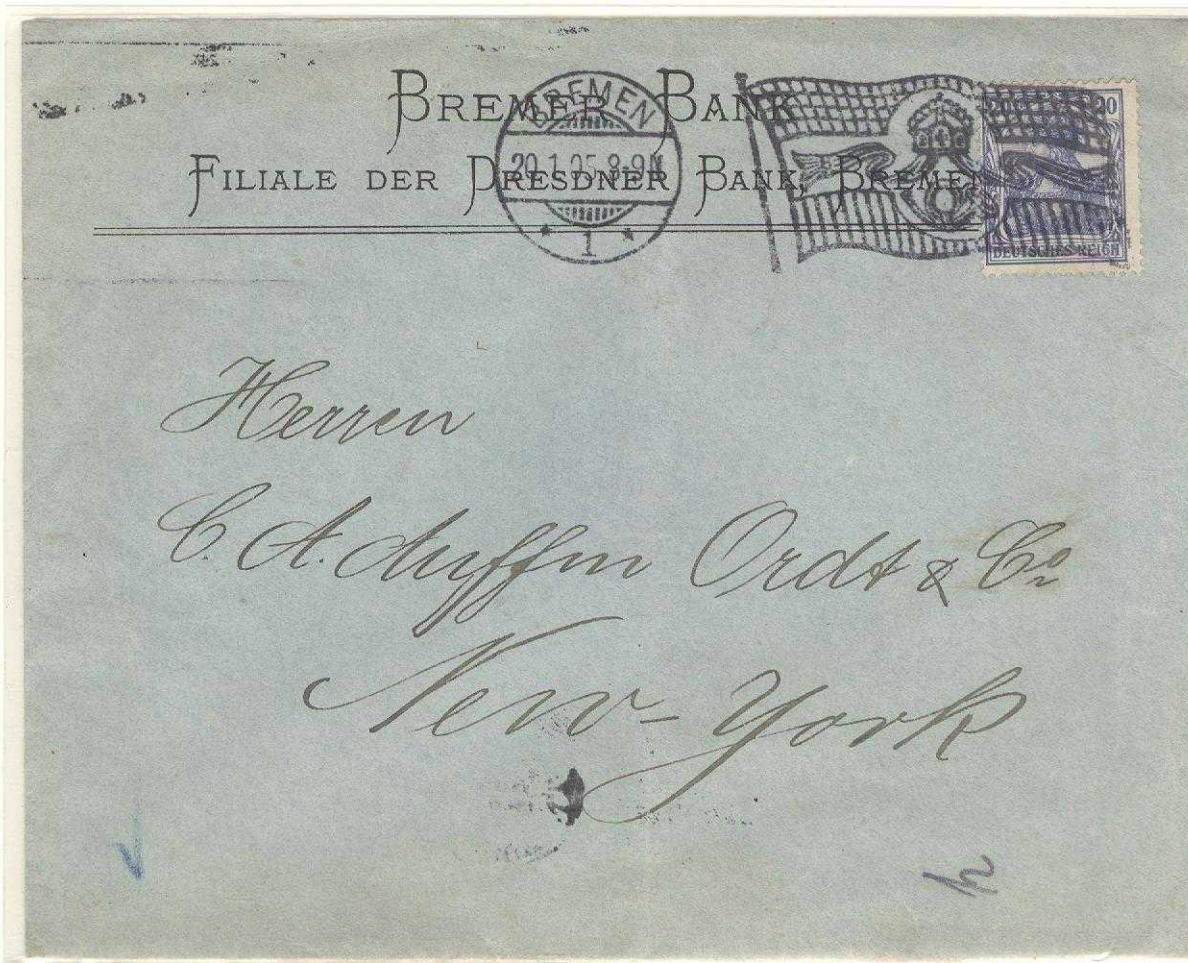 BREMER BANK
FILIALE DER DRESDNER BANK, BREMEN
BREMEN
20.1.05.8-9N
* 1 *
20
DEUTSCHES REICH
Herren
C. A. Ordt & Co
New-York